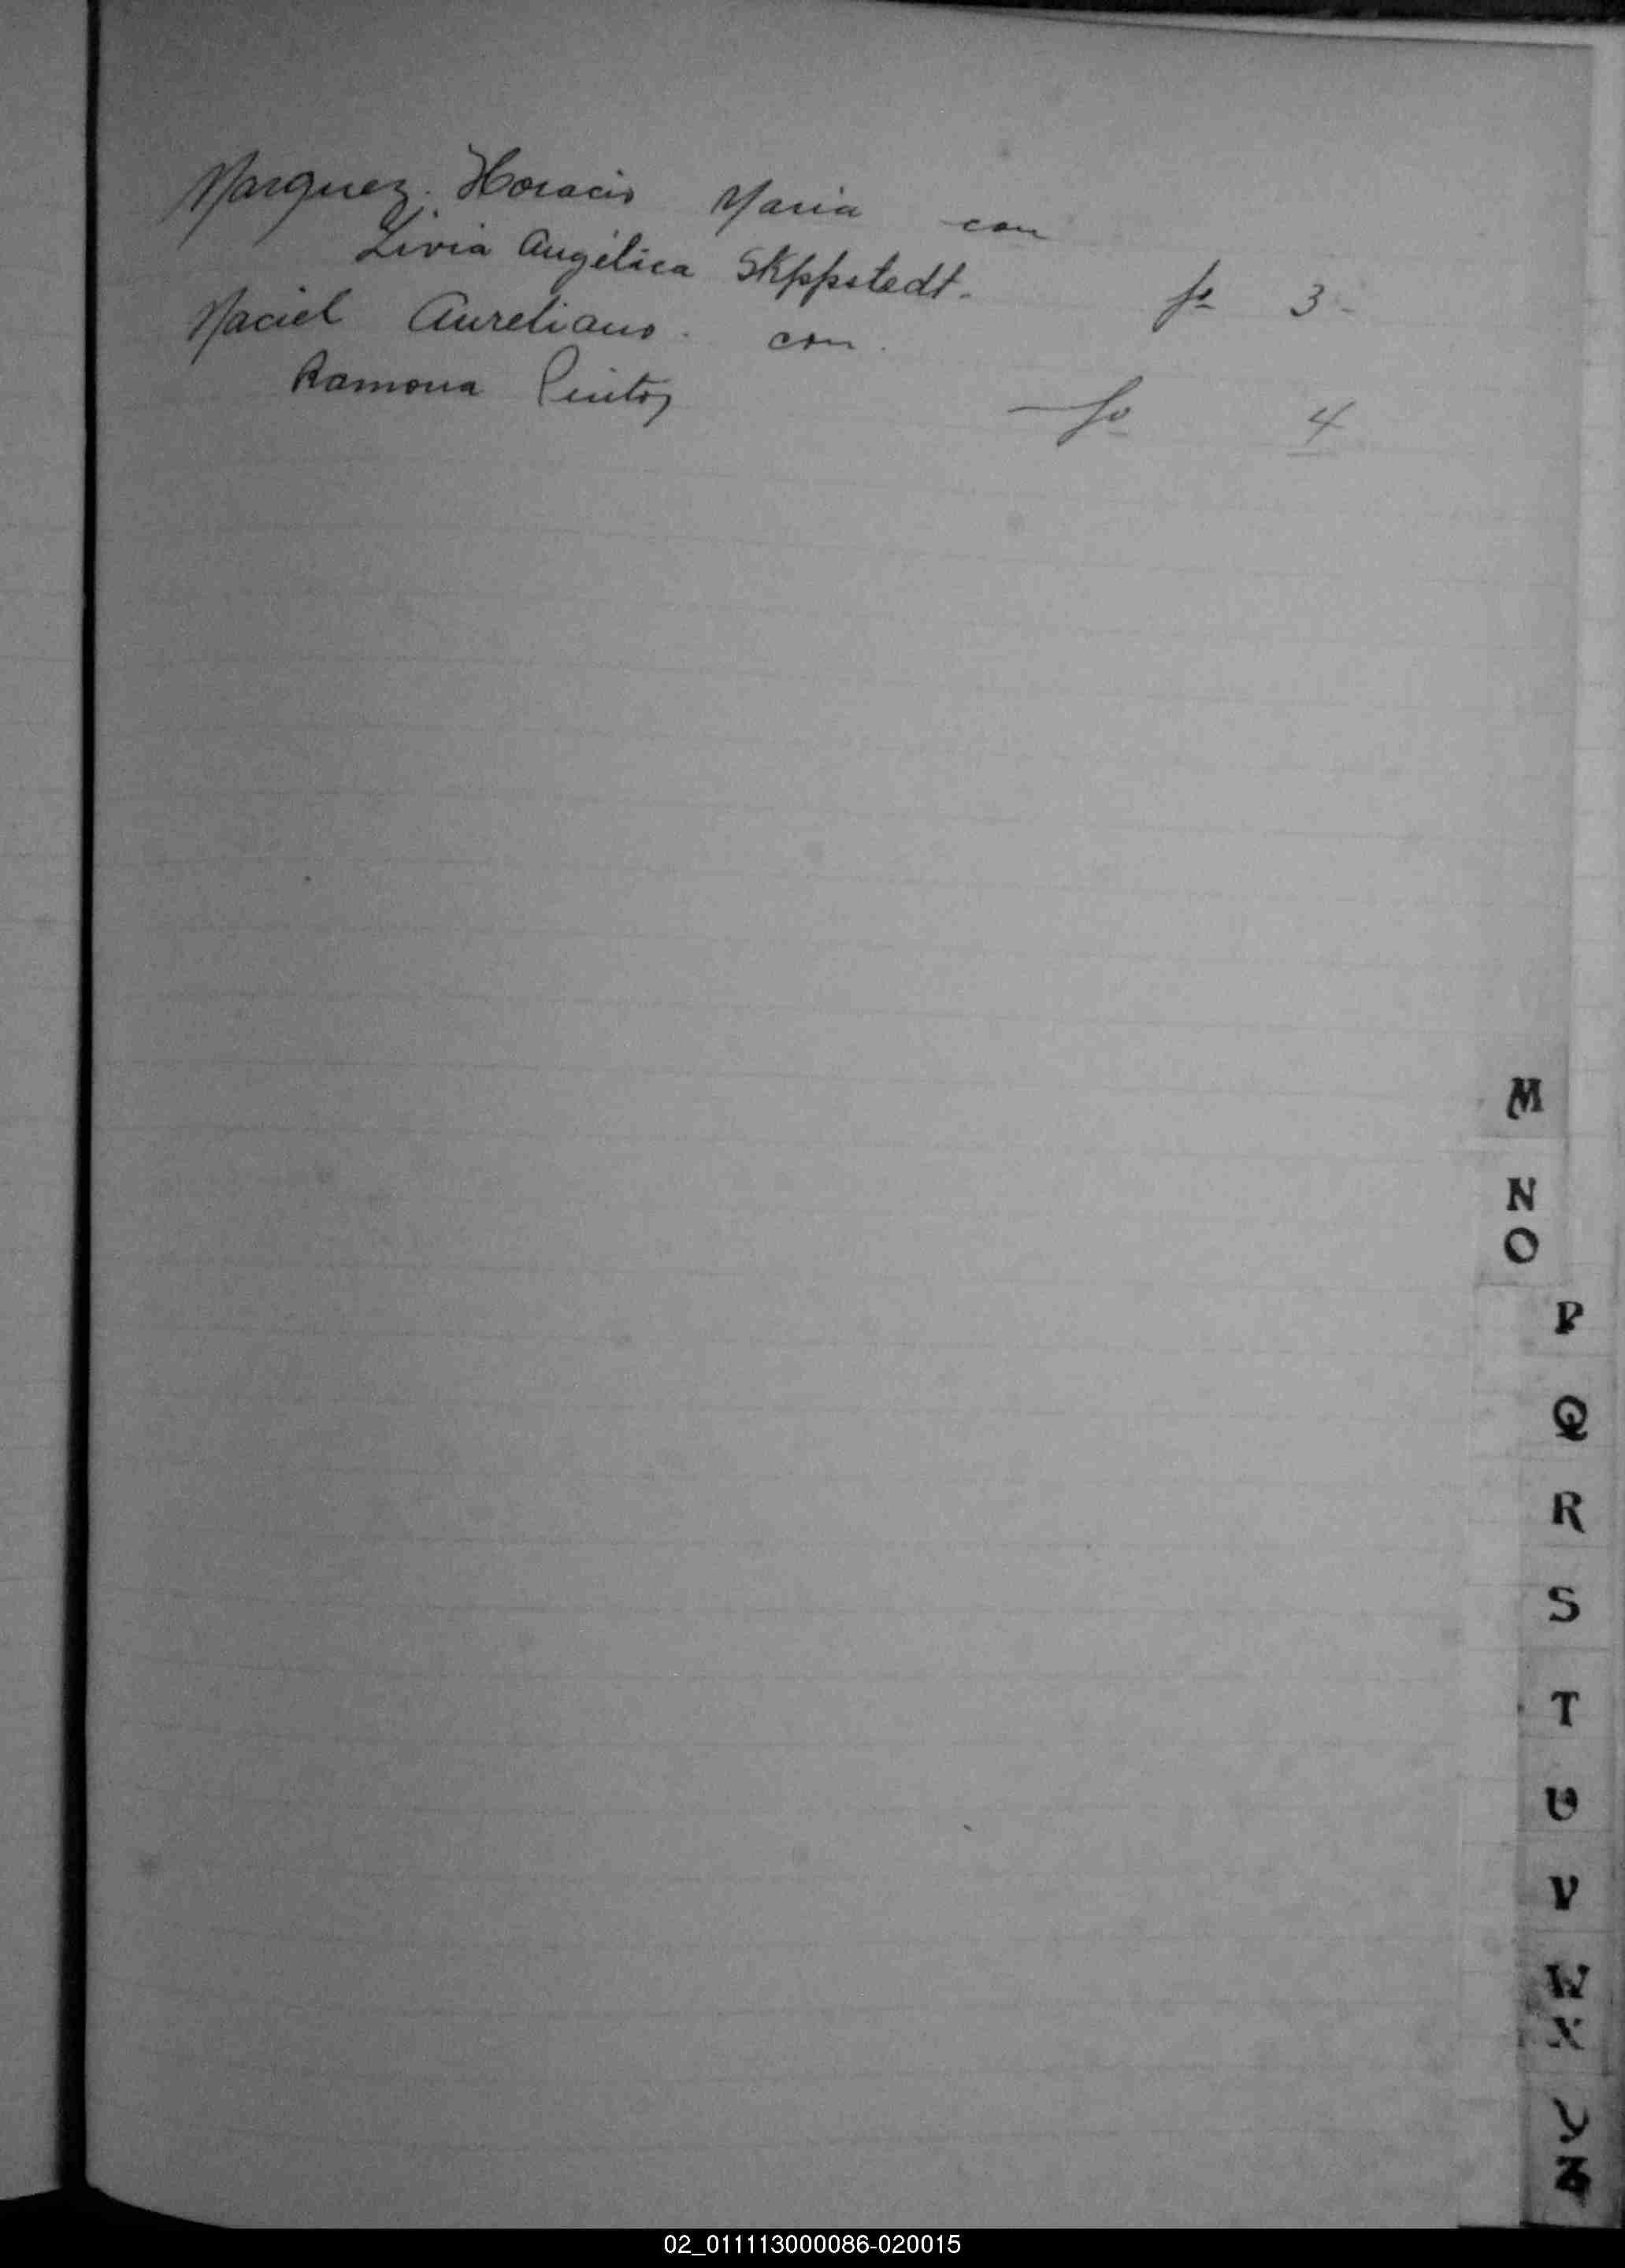 Marquez. Horacio Maria con
Livia Angélica Skppstedt. fº 3-
Maciel Aureliano. con.
Ramona Pintos fº 4
M
N
O
P
Q
R
S
T
U
V
W
X
Y
Z
02_011113000086-020015